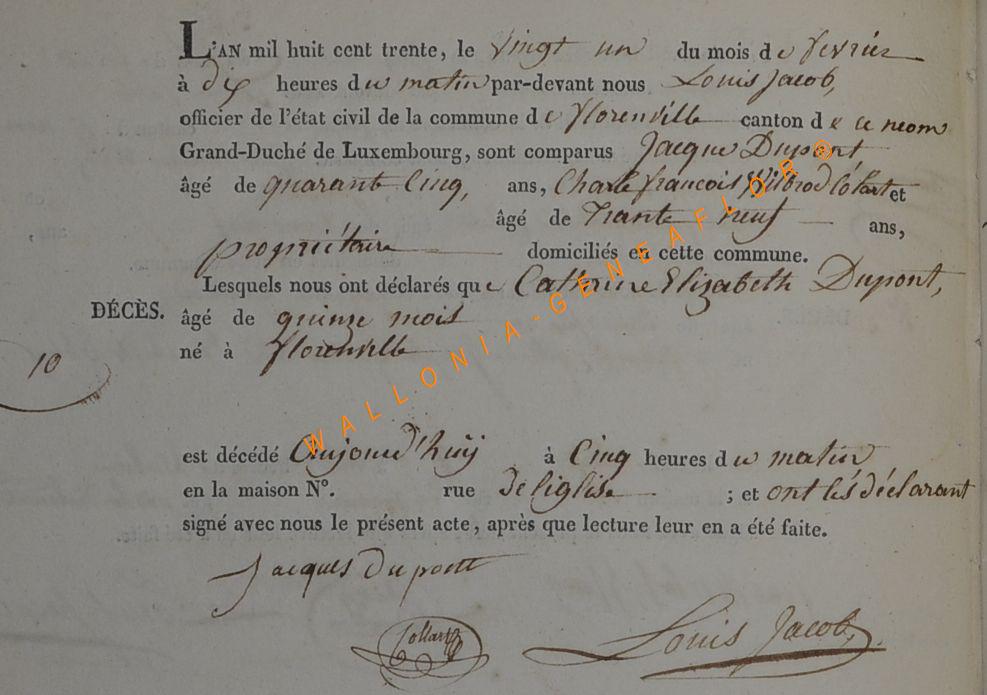 L'AN mil huit cent trente, le Vingt un du mois de fevrier
à dix heures du matin par-devant nous Louis Jacob,
officier de l'état civil de la commune de florenville canton de ce neom
Grand-Duché de Luxembourg, sont comparus Jacque Dupont
âgé de quarant Cinq, ans, Charle francois Wilbrod Colart et
âgé de Trante neuf ans,
propriétaire domiciliés en cette commune.
Lesquels nous ont déclarés que Catherine Elizabeth Dupont,
DÉCÈS. âgé de quinze mois
né à florenville
10
est décédé aujourd'huÿ à Cinq heures du matin
en la maison N°. rue de liglise ; et ont lés déclarant
signé avec nous le présent acte, après que lecture leur en a été faite.
Jacques Dupont
Collart
Louis Jacob,
WALLONIA-GENEAFLOR ®